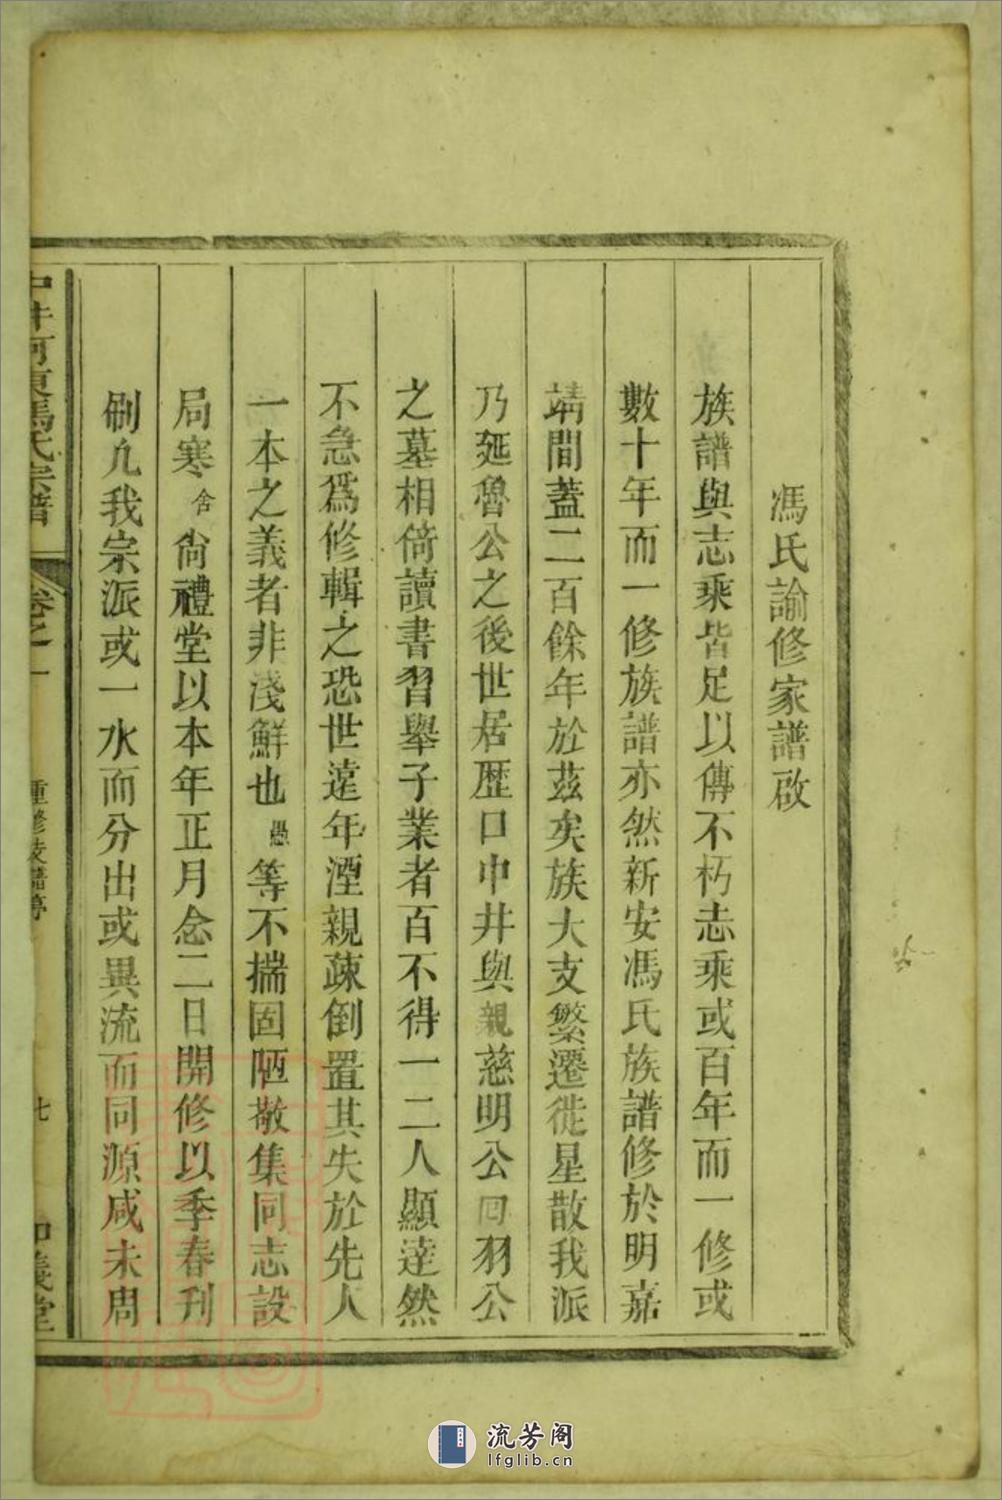 馮氏諭修家譜啟
族譜與志乘皆足以傳不朽志乘或百年而一修或
數十年而一修族譜亦然新安馮氏族譜修於明嘉
靖間蓋二百餘年於茲矣族大支繁遷徙星散我派
乃延魯公之後世居歷口中井與親慈明公同羽公
之墓相倚讀書習舉子業者百不得一二人顯達然
不急爲修輯之恐世遠年湮親疎倒置其失於先人
一本之義者非淺鮮也愚等不揣固陋敬集同志設
局寒舍尙禮堂以本年正月念二日開修以季春刊
刷凢我宗派或一水而分出或異流而同源咸未周
中井河東馮氏宗譜 卷之一 重修族譜 七 和義堂
流芳阁
lfglib.cn